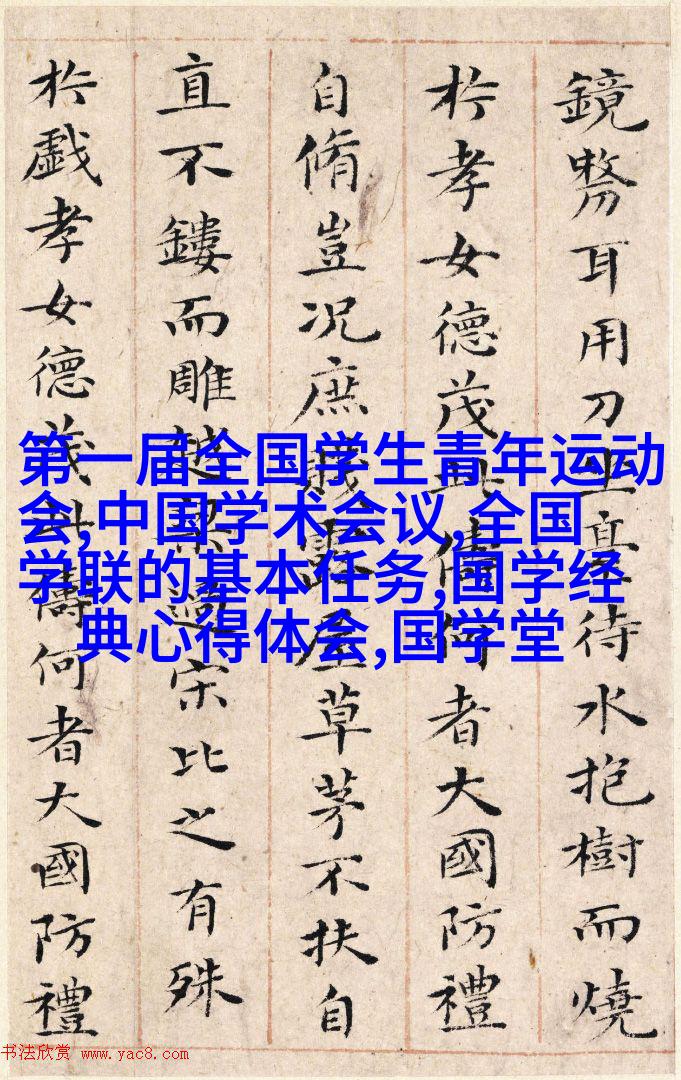 鏡剺耳用刀坐臺待水抱樹而燒
於孝女德茂此儔何者大國防禮
自脩豈況庶賤露屋草茅不扶自
直不鏤而雕越梁過宋比之有殊
於戲孝女德茂此儔何者大國防禮
第一届全国学生青年运动
会,中国学术会议,全国
学联的基本任务,国学经
典心得体会,国学堂
书法欣赏 www.yac8.com